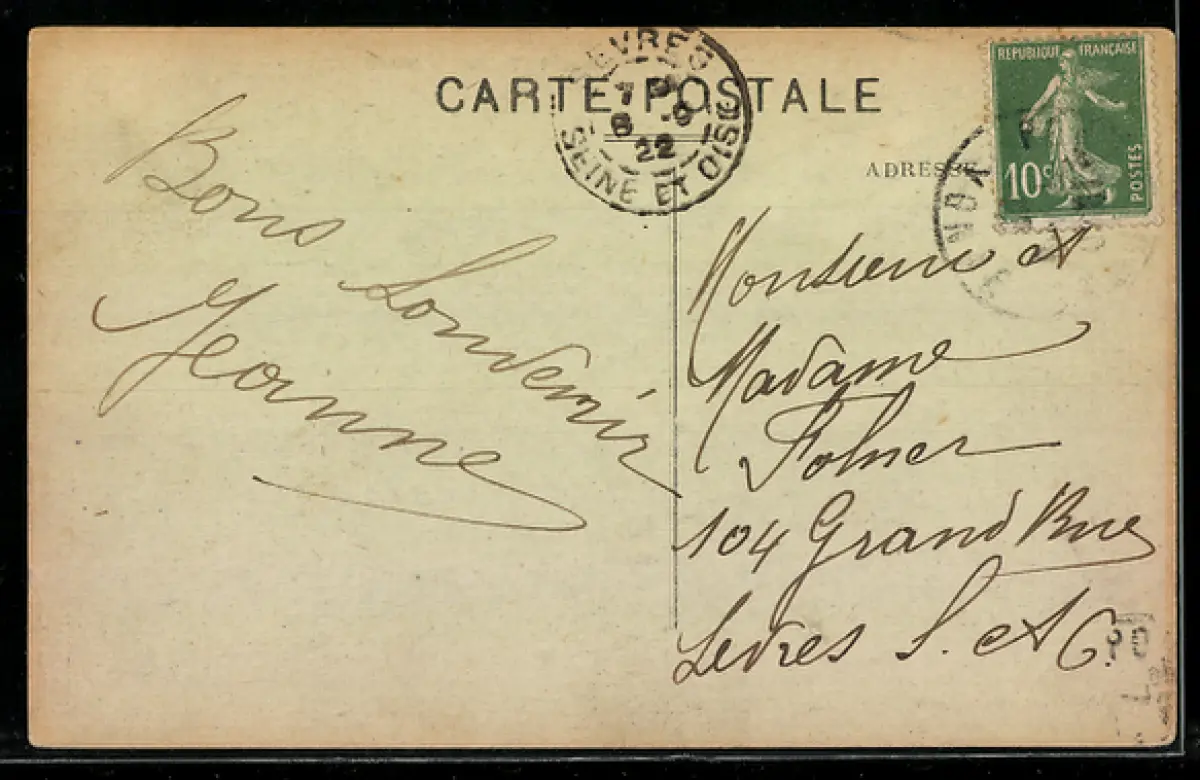 CARTE POSTALE
SEVRES
7
8 -9
22
SEINE ET OISE
REPUBLIQUE FRANÇAISE
10c
POSTES
ADRESSE
Bons Souvenir
Jeanne
Monsieur et
Madame
Folner
104 Grand Rue
Sevres S. et O.